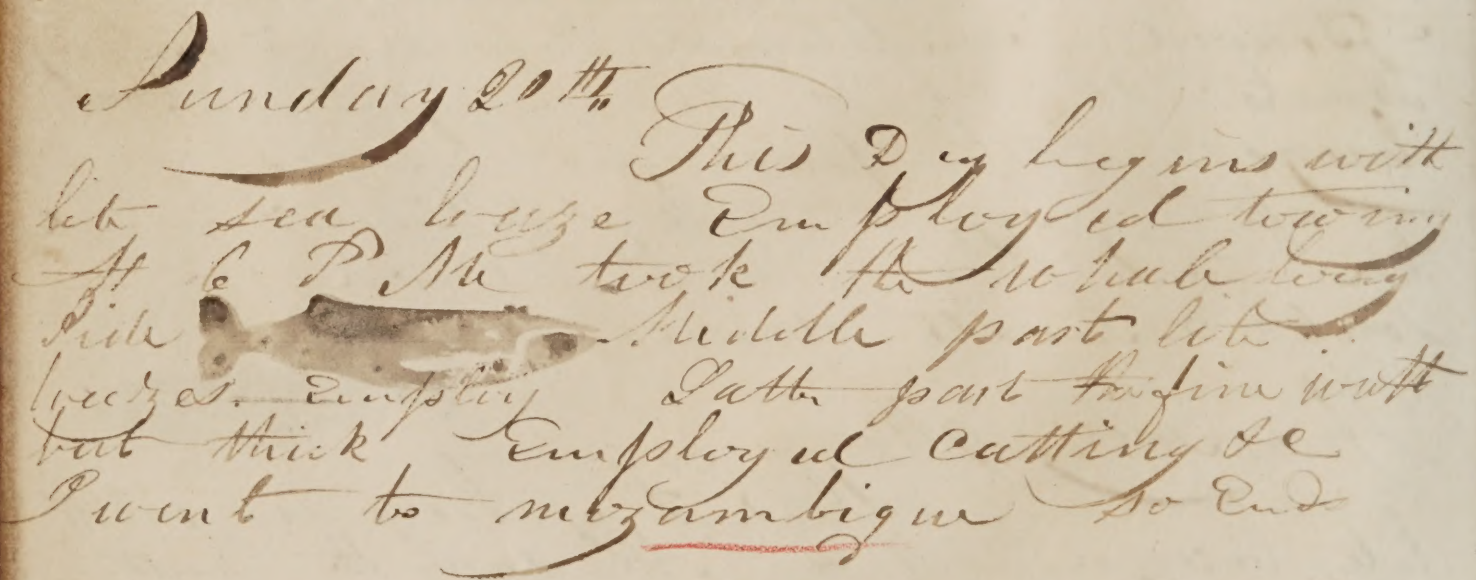 Sunday 20th
This Day begins with
lite sea breze Employed towing
At 6 P M took the whale long
Side Middle part lite
breezes. Employ Latter part fine with
but thick Employed cutting &c
I went to mozambique so Ends